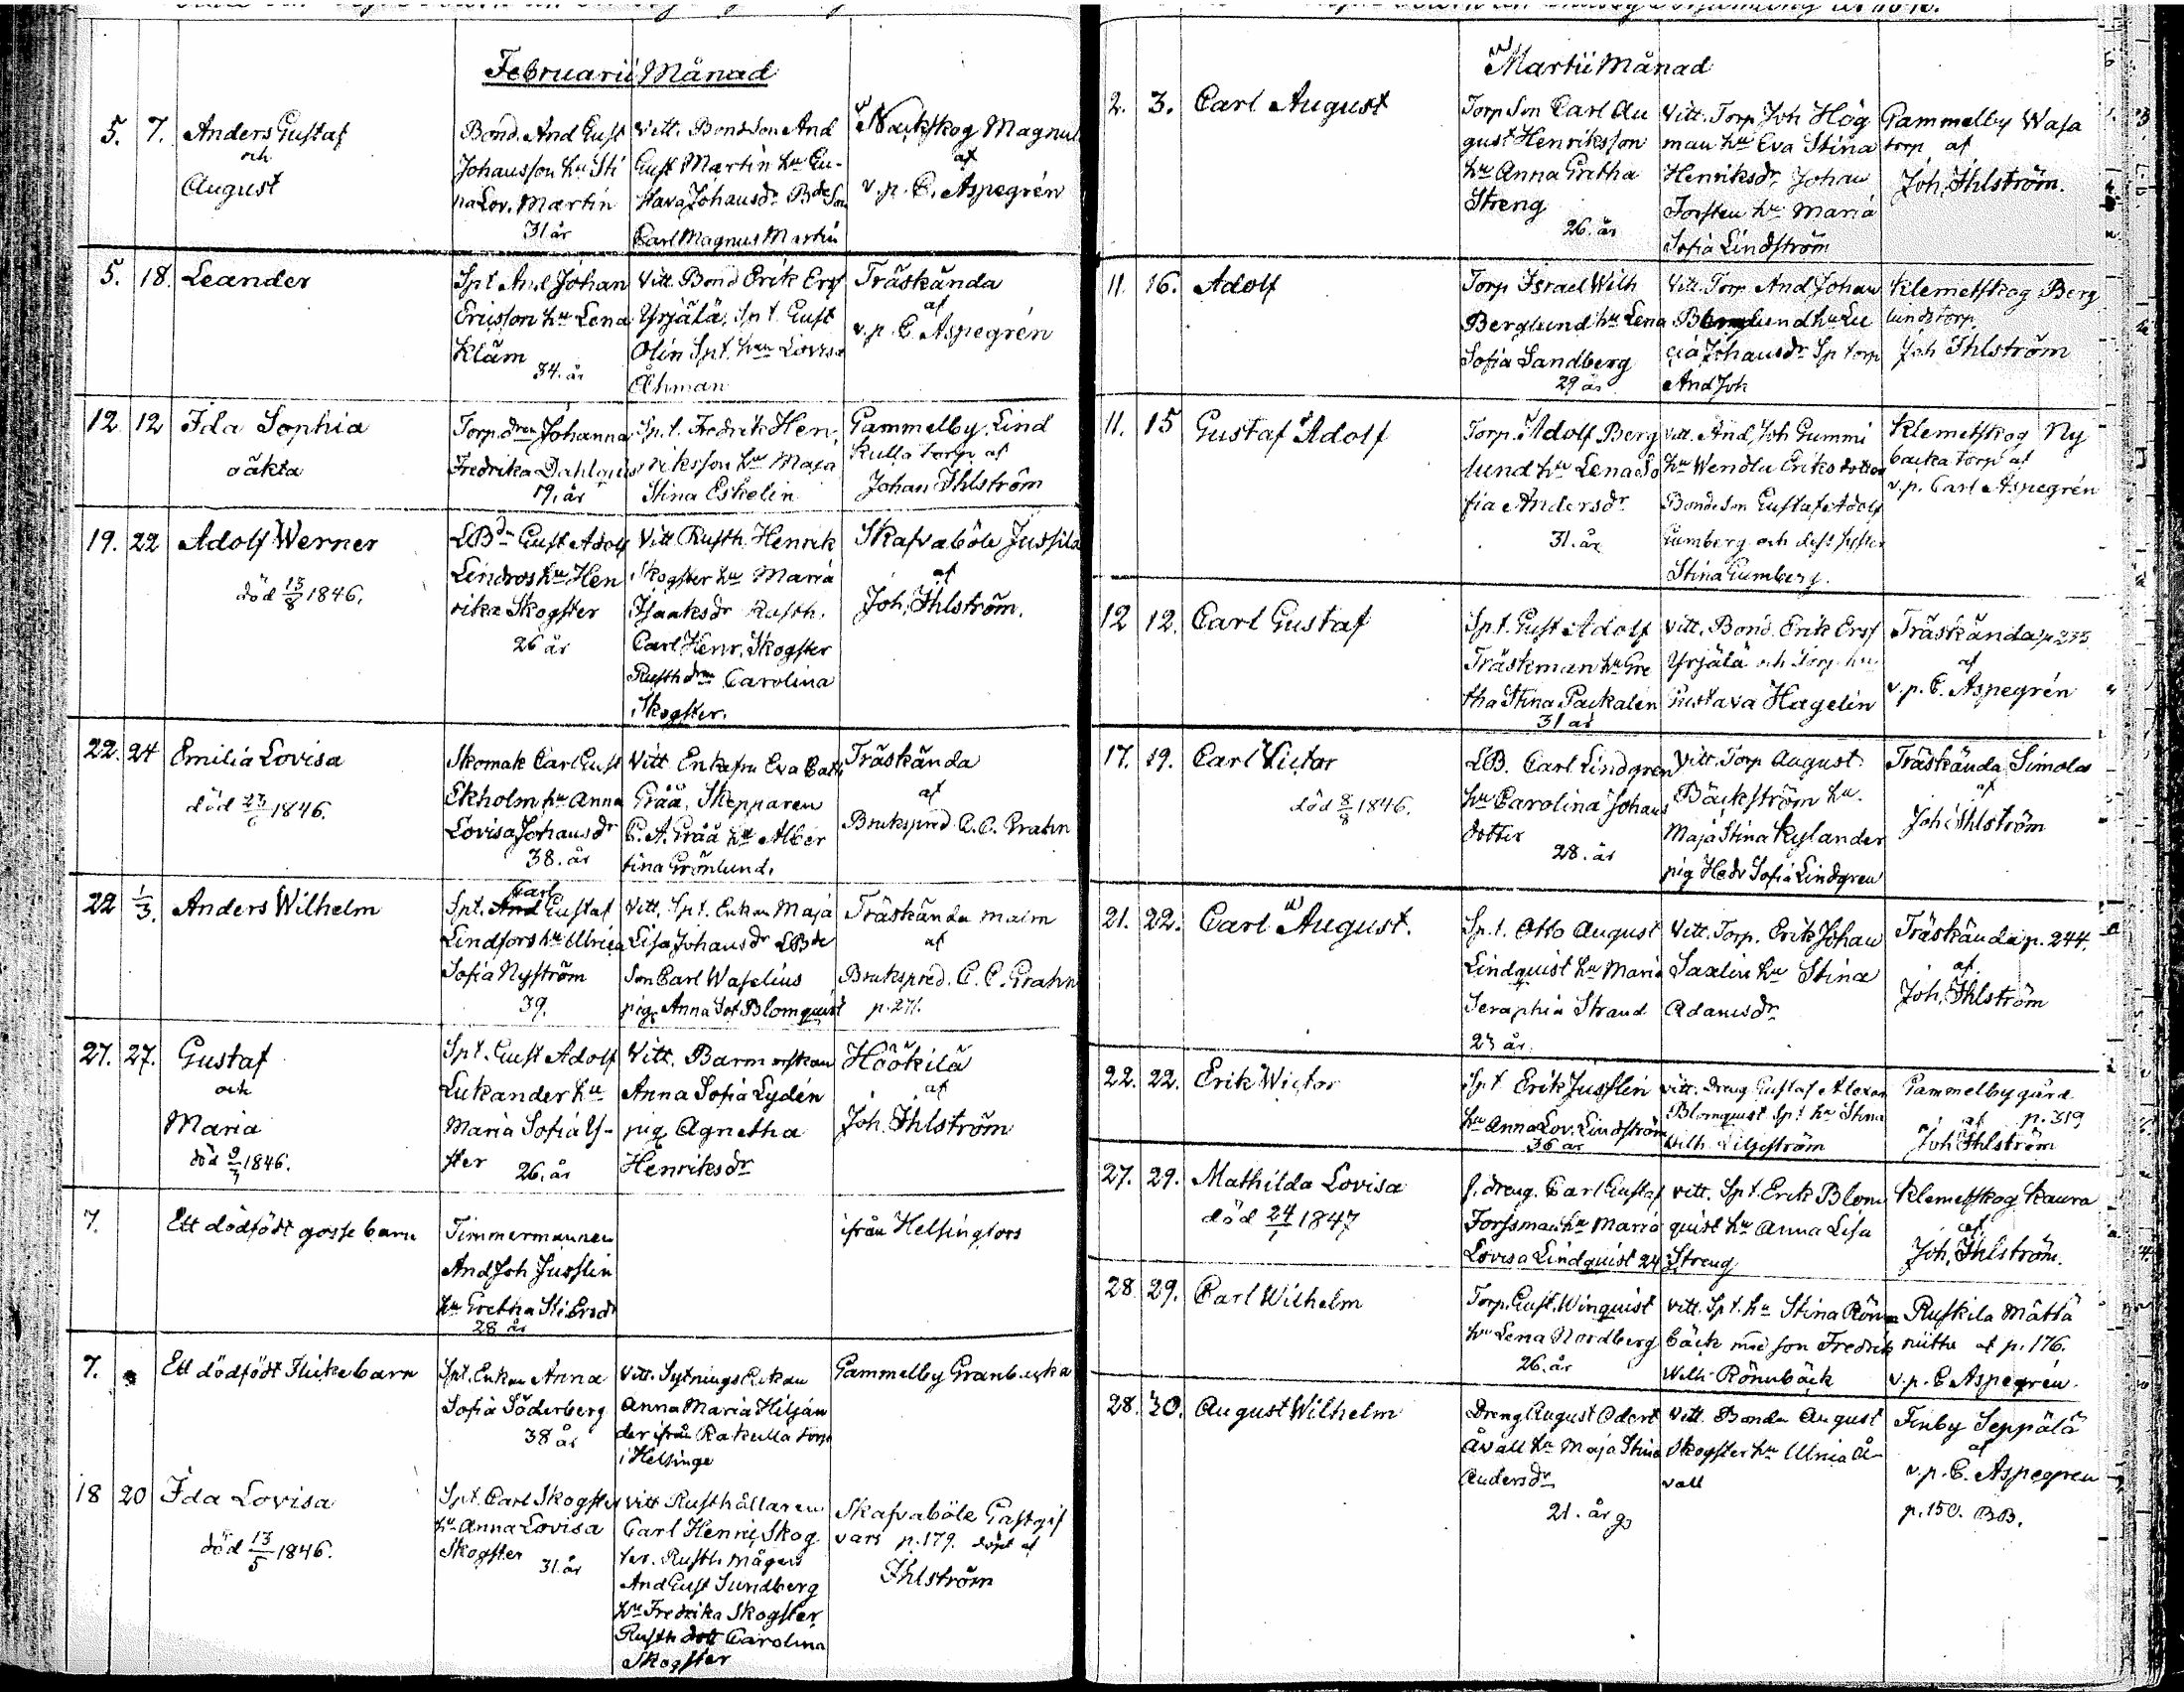 Februarii Månad
5. 7. Anders Gustaf
och
August
Bond. And Gust
Johansson hu Sti
na Lov. Martin
31 år
Vitt. Bondson And
Gust Martin hu Gu-
stava Johansdr Bde Son
Carl Magnus Martin
Nackskog Magnus
af
v.p. C. Aspegrén
5. 18. Leander
Spt And Johan
Ericsson hu Lena
Kläm
34. år
Vitt. Bond Erik Ersf
Yrjälä, Spt. Gust
Olin Spt. hun Lovisa
Öhman
Träskända
af
v.p. C. Aspegrén
12 12 Ida Sophia
oäkta
Torp.dren Johanna
Fredrika Dahlquist
19. år
Sp.t. Fredrik Hen,
riksson hu Maja
Stina Eskelin
Gammelby Lind
kulla torp af
Johan Ihlström
19. 22 Adolf Werner
död 13/8 1846.
LBdn Gust Adolf
Lindros hu Hen
rika Skogster
26 år
Vitt Rusth. Henrik
Skogster hu Maria
Isaaksdr Rusth.
Carl Henr. Skogster
Rusth drn Carolina
Skogster.
Skafvaböle Jussila
af
Joh. Ihlström.
22. 24 Emilia Lovisa
död 1846.
Skomak Carl Gust
Ekholm hu Anna
Lovisa Johansdr
38. år
Vitt Enkefru Eva Cath
Gråå, Skepparen
C. A. Gråå hu Alber
tina Grönlund.
Träskända
af
Brukspred. C. C. Grahn
22 1/3. Anders Wilhelm
Carl
Spt. And Gustaf
Lindfors hu Ulrica
Sofia Nyström
39.
Vitt. Spt. Enkan Maja
Lisa Johansdr LBde
son Carl Waselius
pig. Anna Sof Blomquist
Träskända malm
af
Brukspred. C. C. Grahn
p. 271.
27. 27. Gustaf
och
Maria
död 9/7 1846.
Spt. Gust Adolf
Lukander hu
Maria Sofia Ul-
ster 26. år
Vitt. Barmorskan
Anna Sofia Lydén
pig Agnetha
Henriksdr
Höökilä
af
Joh. Ihlström
7. Ett dödfödt gosse barn
Timmermannen
And Joh Jusslin
hu Gretha Sti Ersdr
28 år
ifrån Helsingfors
7. Ett dödfödt Flickebarn
Spt. Enkan Anna
Sofia Söderberg
38 år
Vitt. Sytnings Enkan
Anna Maria Hiljan
der ifrån Rakulla torp
i Helsinge
Gammelby Granbacka
18 20 Ida Lovisa
död 13/5 1846.
Spt. Carl Skogster
hu Anna Lovisa
Skogster 31 år
Vitt Rusthållaren
Carl Henric Skog
ster. Rusth. mågen
And Gust Sundberg
hu Fredrika Skogster
Rusth dott Carolina
Skogster
Skafvaböle Gästgif
vars p. 179. döpt af
Ihlström
Martii Månad
2. 3. Carl August
Torp Son Carl Au
gust Henriksson
hu Anna Gretha
Streng
26. år
Vitt. Torp Joh Hög
man hu Eva Stina
Henriksdr, Johan
Torsten hu Maria
Sofia Lindström
Gammelby Wasa
torp af
Joh. Ihlström.
11. 16. Adolf
Torp Israel Wilh
Berglund hu Lena
Sofia Sandberg
29 år
Vitt. Torp And Johan
Berglund hu Lu
cia Johansdr Sp torp
And Joh
Klemetskog Berg
lunds torp
Joh Ihlström
11. 15 Gustaf Adolf
Torp. Adolf Berg
lund hu Lena So
fia Andersdr
31. år
Vitt. And. Joh Gummi
hu Wendla Eriks dotter
Bondeson Gustaf Adolf
Gumberg och dess syster
Stina Gumberg.
Klemetskog Ny
backa torp af
v.p. Carl Aspegrén
12 12. Carl Gustaf
Spt. Gust Adolf
Träskman hu Gre
tha Stina Packalén
31 år
Vitt. Bond. Erik Ersf
Yrjälä och Torp. hu
Gustava Hagelin
Träskända p 235
af
v.p. C. Aspegrén
17. 19. Carl Victor
död 8/8 1846.
LB. Carl Lindgren
hu Carolina Johans
dotter
28. år
Vitt. Torp August
Bäckström hu.
Maja Stina Kylander
pig Hedv Sofia Lindgren
Träskända Simola
af
Joh Ihlström
21. 22. Carl August.
Sp.t. Otto August
Lindquist hu Maria
Seraphia Strand
23 år.
Vitt. Torp. Erik Johan
Saxlin hu Stina
Adamsdr
Träskända p. 244.
af
Joh. Ihlström
22. 22. Erik Wictor
Spt Erik Jusslin
hu Anna Lov. Lindström
36 år
Vitt. dreng Gustaf Alexan
Blomquist Spt hu Stina
Wilh. Liljeström
Gammelby gård
af p. 319
Joh Ihlström
27. 29. Mathilda Lovisa
död 24/7 1847
f. dreng. Carl Gustaf
Forssman hu Maria
Lovisa Lindquist 24
Vitt. Spt. Erik Blom
quist hu Anna Lisa
Streng
Klemetskog Kaura
af
Joh. Ihlström.
28. 29. Carl Wilhelm
Torp. Gust. Winquist
hu Lena Nordberg
26. år
Vitt. Spt. hu Stina Rönn
bäck med son Fredrik
Wilh. Rönnbäck
Ruskila Mätta
nitty af p. 176.
v.p. C Aspegrén.
28. 30. August Wilhelm
Dreng August Odert
Åvall hu Maja Stina
Andersdr
21. år
Vitt. Bonden August
Skogster hu Ulrica Å-
vall
Finby Seppälä
af
v.p. C. Aspegren
p. 150. BB.